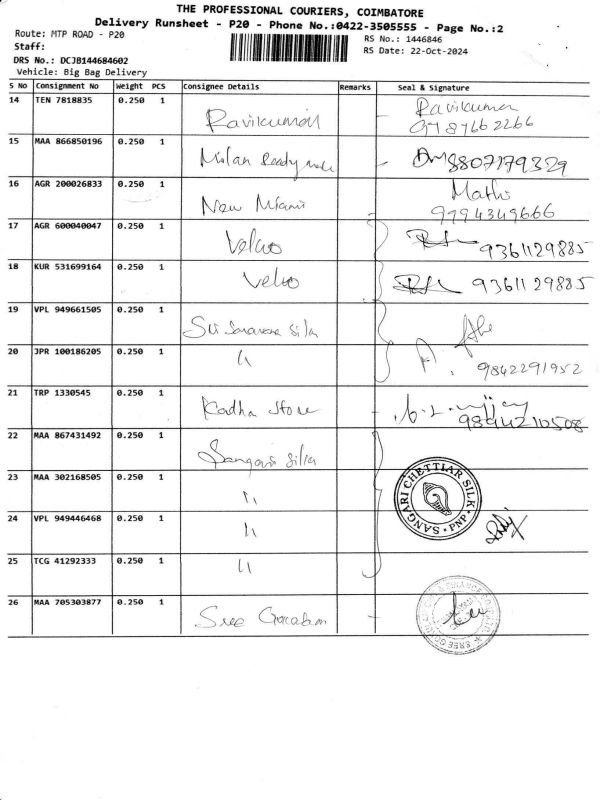 THE PROFESSIONAL COURIERS, COIMBATORE
Delivery Runsheet - P20 - Phone No.:0422-3505555 - Page No.:2
Route: MTP ROAD - P20
RS No.: 1446846
Staff:
RS Date: 22-Oct-2024
DRS No.: DCJB144684602
Vehicle: Big Bag Delivery
S No Consignment No Weight PCS Consignee Details Remarks Seal & Signature
14 TEN 7818835 0.250 1 Ravikumar Ravikumar
9787662266
15 MAA 866850196 0.250 1 Milan Readymade 8807179329
16 AGR 200026833 0.250 1 New Miami Mathi
9794349666
17 AGR 600040047 0.250 1 Velavo 9361129885
18 KUR 531699164 0.250 1 Velvo 9361129885
19 VPL 949661505 0.250 1 Sri Saravana Silk
20 JPR 100186205 0.250 1 " 9842291952
21 TRP 1330545 0.250 1 Radha Store 9894210508
22 MAA 867431492 0.250 1 Sangari Silk
23 MAA 302168505 0.250 1 "
SANGARI CHETTIAR SILK
* PNP *
24 VPL 949446468 0.250 1 "
25 TCG 41292333 0.250 1 "
26 MAA 705303877 0.250 1 Sree Gokulam